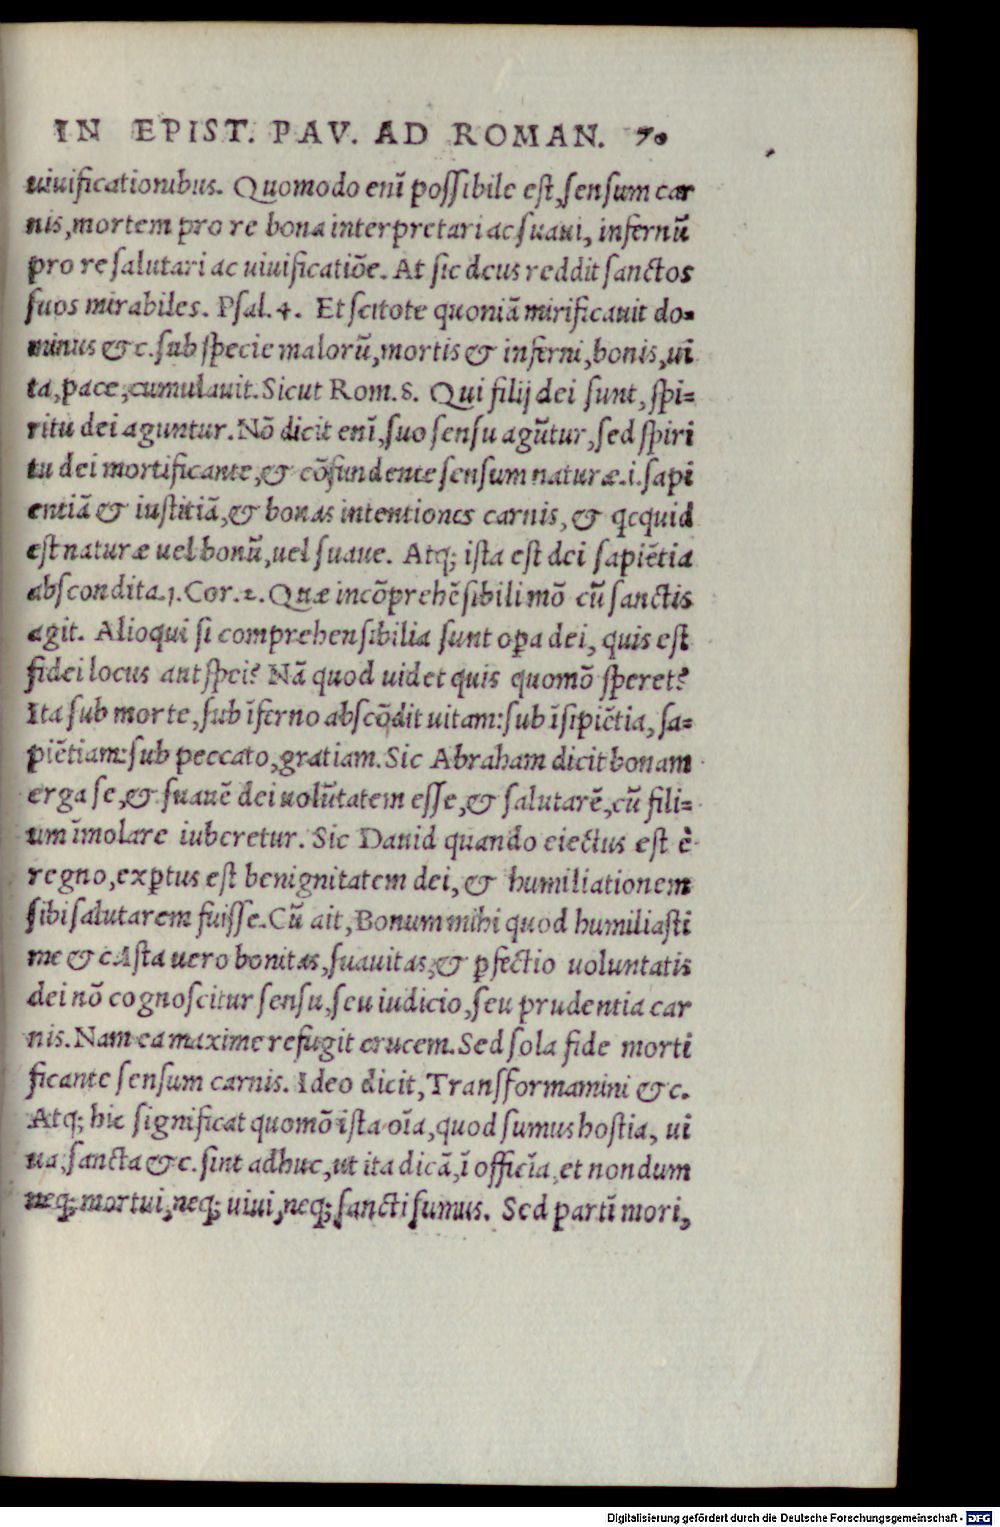 IN EPIST. PAV. AD ROMAN. 70
uiuificationibus. Quomodo enĩ poſſibile eſt, ſenſum car
nis, mortem pro re bona interpretari ac ſuaui, infernũ
pro re ſalutari ac uiuificatiõe. At ſic deus reddit ſanctos
ſuos mirabiles. Pſal. 4. Et ſcitote quoniã mirificauit do-
minus &c. ſub ſpecie malorũ, mortis & inferni, bonis, ui
ta, pace, cumulauit. Sicut Rom. 8. Qui filij dei ſunt, ſpi-
ritu dei aguntur. Nõ dicit enĩ, ſuo ſenſu agũtur, ſed ſpiri
tu dei mortificante, & cõfundente ſenſum naturæ .i. ſapi
entiã & iuſtitiã, & bonas intentiones carnis, & qcquid
eſt naturæ uel bonũ, uel ſuaue. Atq; iſta eſt dei ſapiẽtia
abſcondita .1. Cor. 2. Quæ incõprehẽſibili mõ cũ ſanctis
agit. Alioqui ſi comprehenſibilia ſunt oꝑa dei, quis eſt
fidei locus aut ſpei? Nã quod uidet quis quomõ ſperet?
Ita ſub morte, ſub ĩferno abſcõdit uitam: ſub ĩſipiẽtia, ſa-
piẽtiam: ſub peccato, gratiam. Sic Abraham dicit bonam
erga ſe, & ſuauẽ dei uolũtatem eſſe, & ſalutarẽ, cũ fili-
um ĩmolare iuberetur. Sic Dauid quando eiectus eſt è
regno, exꝑtus eſt benignitatem dei, & humiliationem
ſibi ſalutarem fuiſſe. Cũ ait, Bonum mihi quod humiliaſti
me &c. Aſta uero bonitas, ſuauitas, & ꝑfectio uoluntatis
dei nõ cognoſcitur ſenſu, ſeu iudicio, ſeu prudentia car
nis. Nam ea maxime refugit crucem. Sed ſola fide morti
ficante ſenſum carnis. Ideo dicit, Tranſformamini &c.
Atq; hic ſignificat quomõ iſta oĩa, quod ſumus hoſtia, ui
ua, ſancta &c. ſint adhuc, ut ita dicã, ĩ officĩa, et nondum
neq; mortui, neq; uiui, neq; ſancti ſumus. Sed partĩ mori,
Digitalisierung gefördert durch die Deutsche Forschungsgemeinschaft - DFG